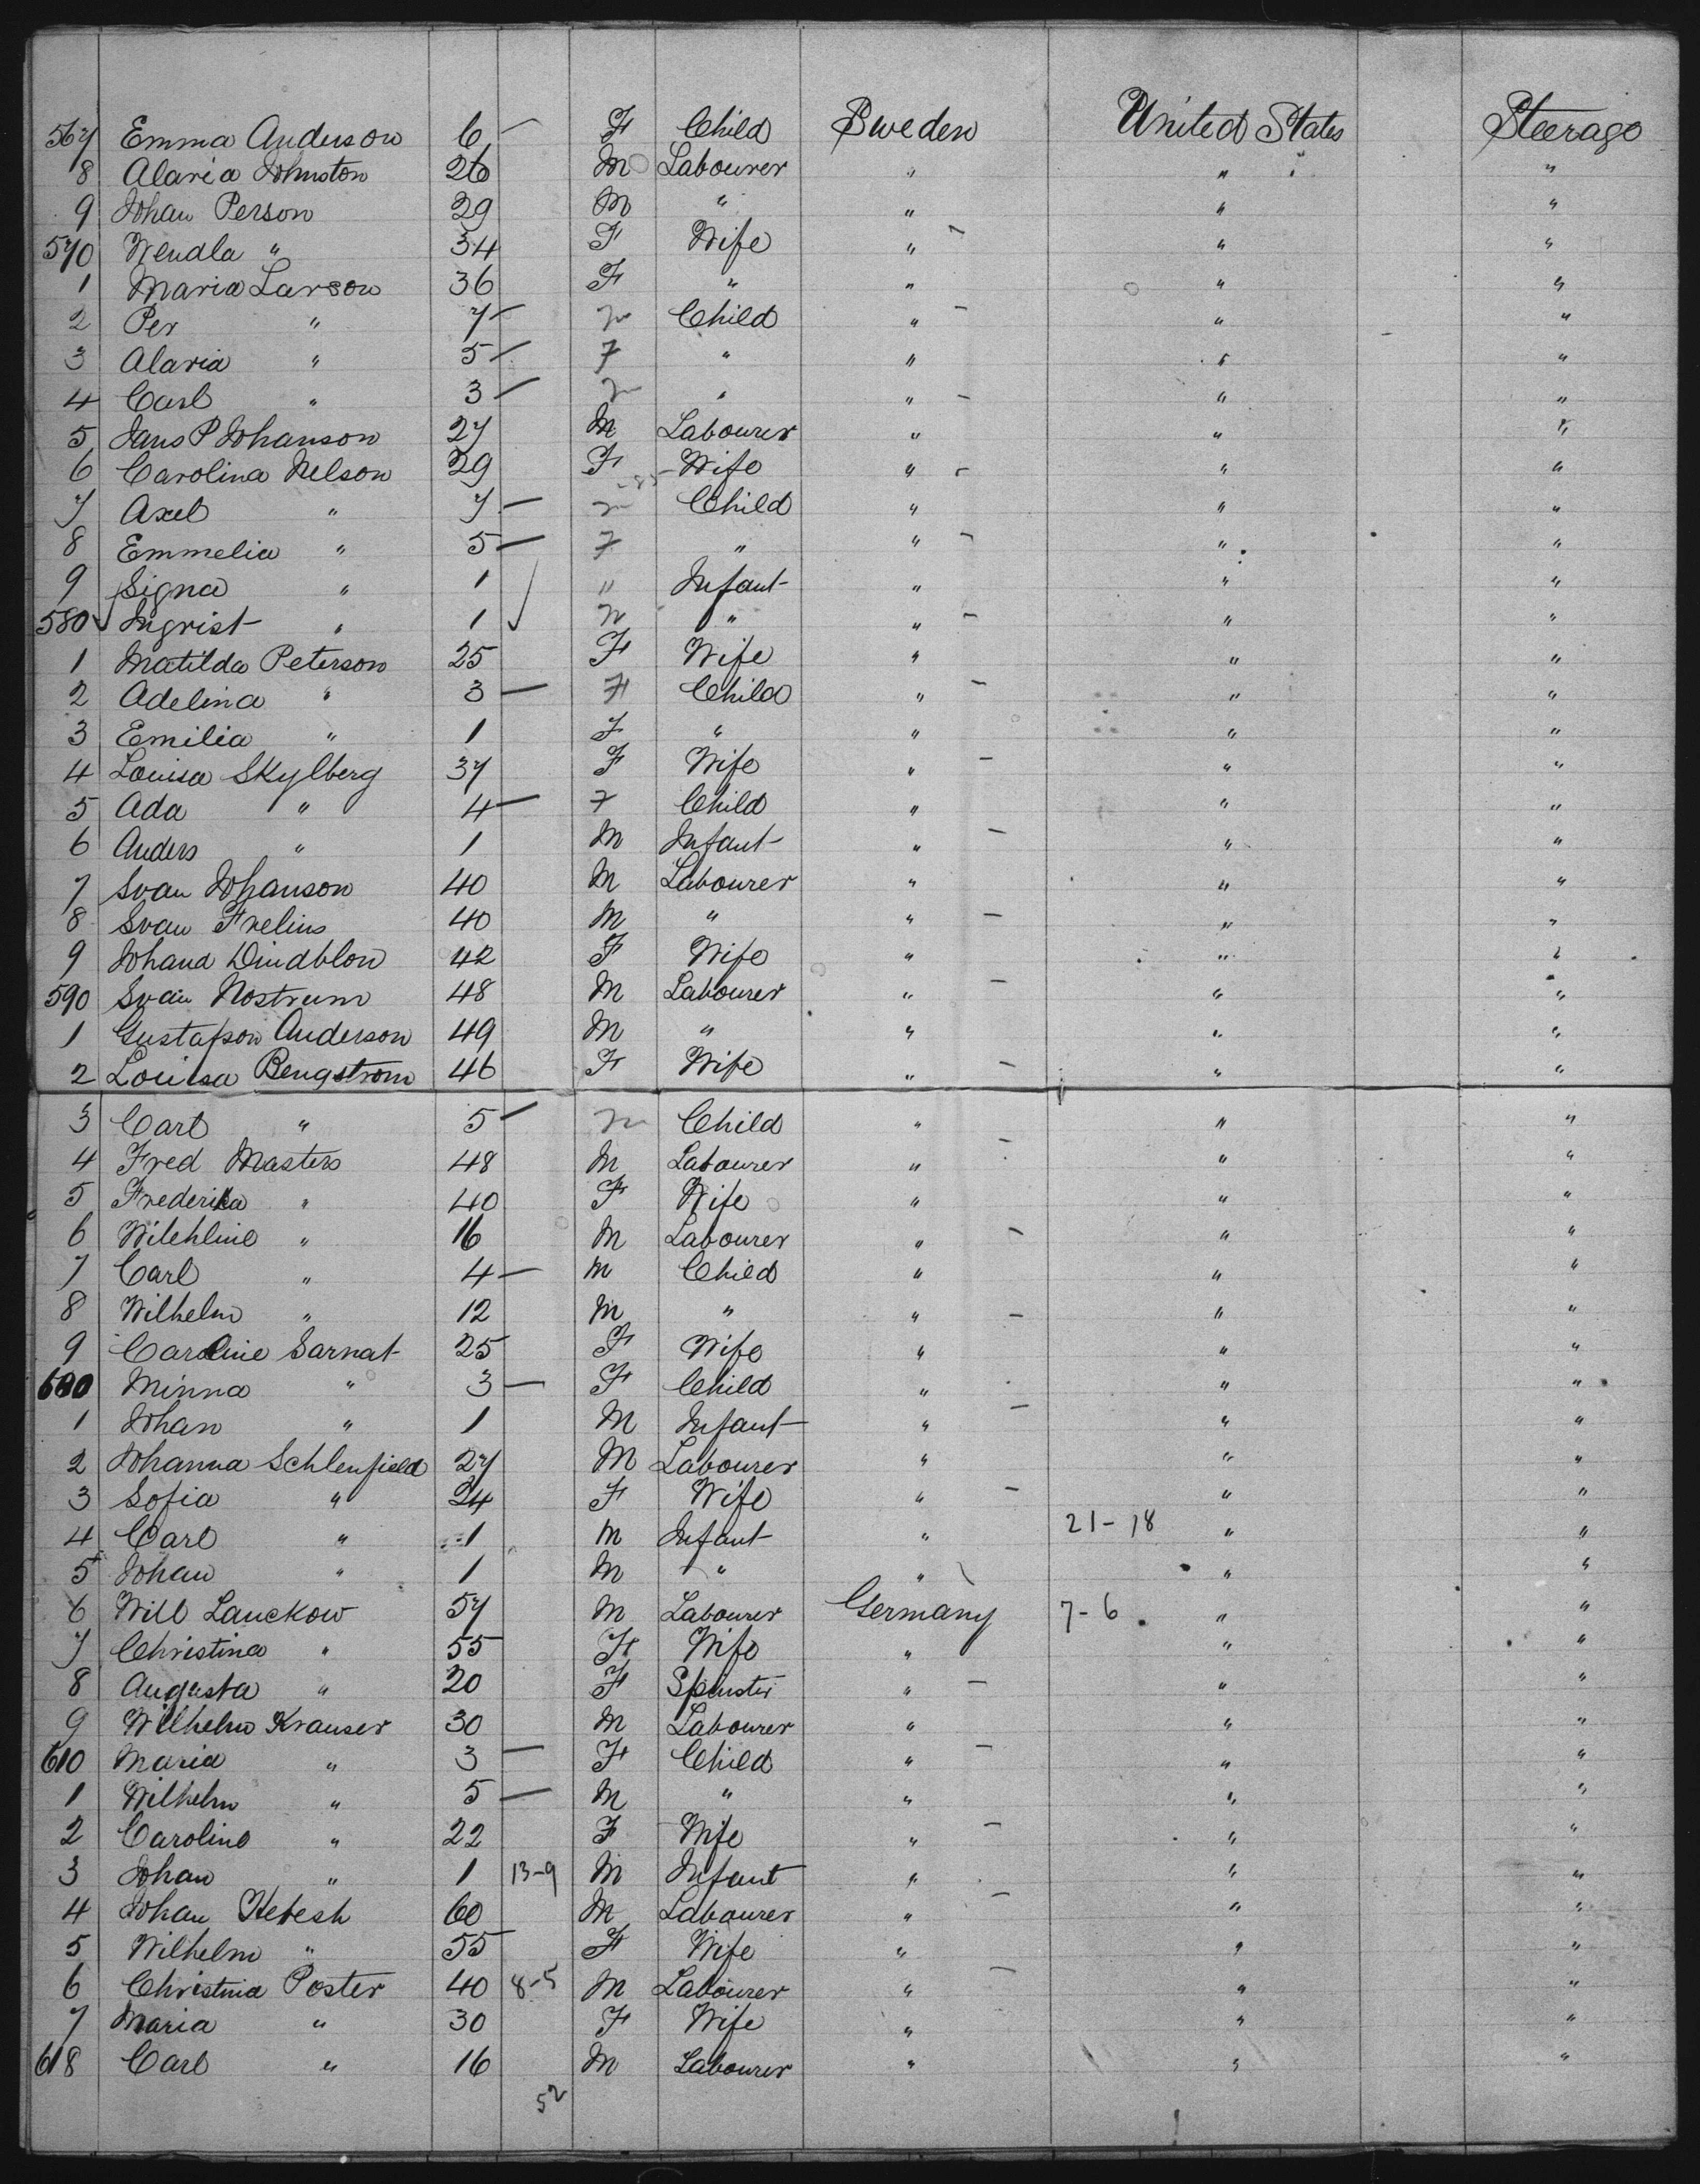 567 Emma Anderson 6 — F Child Sweden United States Steerage
8 Alaria Johnston 26 M Labourer " " "
9 Johan Person 29 M " " " "
570 Wendla " 34 F Wife " — " "
1 Maria Larson 36 F " " " "
2 Per " 7 — m Child " — " "
3 Alaria " 5 — F " " " "
4 Carl " 3 — m " " — " "
5 Jans P Johanson 27 M Labourer " " "
6 Carolina Nelson 29 F Wife " — " "
7 Axel " 7 — m Child " " "
8 Emmelia " 5 — F " " — " "
9 Signa " 1 " Infant " " "
580 Ingrist " 1 m " " — " "
1 Matilda Peterson 25 F Wife " " "
2 Adelina " 3 — F Child " — " "
3 Emilia " 1 F " " " "
4 Louisa Skylberg 37 F Wife " — " "
5 Ada " 4 — F Child " " "
6 Anders " 1 M Infant " — " "
7 Svan Johanson 40 M Labourer " " "
8 Svan Frelins 40 M " " — " "
9 Johana Dindblon 42 F Wife " " "
590 Svan Nostrum 48 M Labourer " — " "
1 Gustafson Anderson 49 M " " " "
2 Louisa Bengstrom 46 F Wife " — " "
3 Carl " 5 — m Child " " "
4 Fred Masters 48 M Labourer " — " "
5 Frederika " 40 F Wife " " "
6 Wilehline " 16 M Labourer " — " "
7 Carl " 4 — M Child " " "
8 Wilhelm " 12 M " " — " "
9 Caroline Sarnat 25 F Wife " " "
600 Minna " 3 — F Child " " "
1 Johan " 1 M Infant " — " "
2 Johanna Schlenfield 27 M Labourer " " "
3 Sofia " 24 F Wife " — " "
4 Carl " 1 M Infant " 21-18 " "
5 Johan " 1 M " " " "
6 Will Lanckow 57 M Labourer Germany 7-6 " "
7 Christina " 55 F Wife " " "
8 Augusta " 20 F Spinster " — " "
9 Wilhelm Krauser 30 M Labourer " " "
610 Maria " 3 — F Child " — " "
1 Wilhelm " 5 — M " " " "
2 Caroline " 22 F Wife " — " "
3 Johan " 1 13-9 M Infant " " "
4 Johan Hebesh 60 M Labourer " — " "
5 Wilhelm " 55 F Wife " " "
6 Christina Poster 40 8-5 M Labourer " — " "
7 Maria " 30 F Wife " " "
618 Carl " 16 M Labourer " " "
52